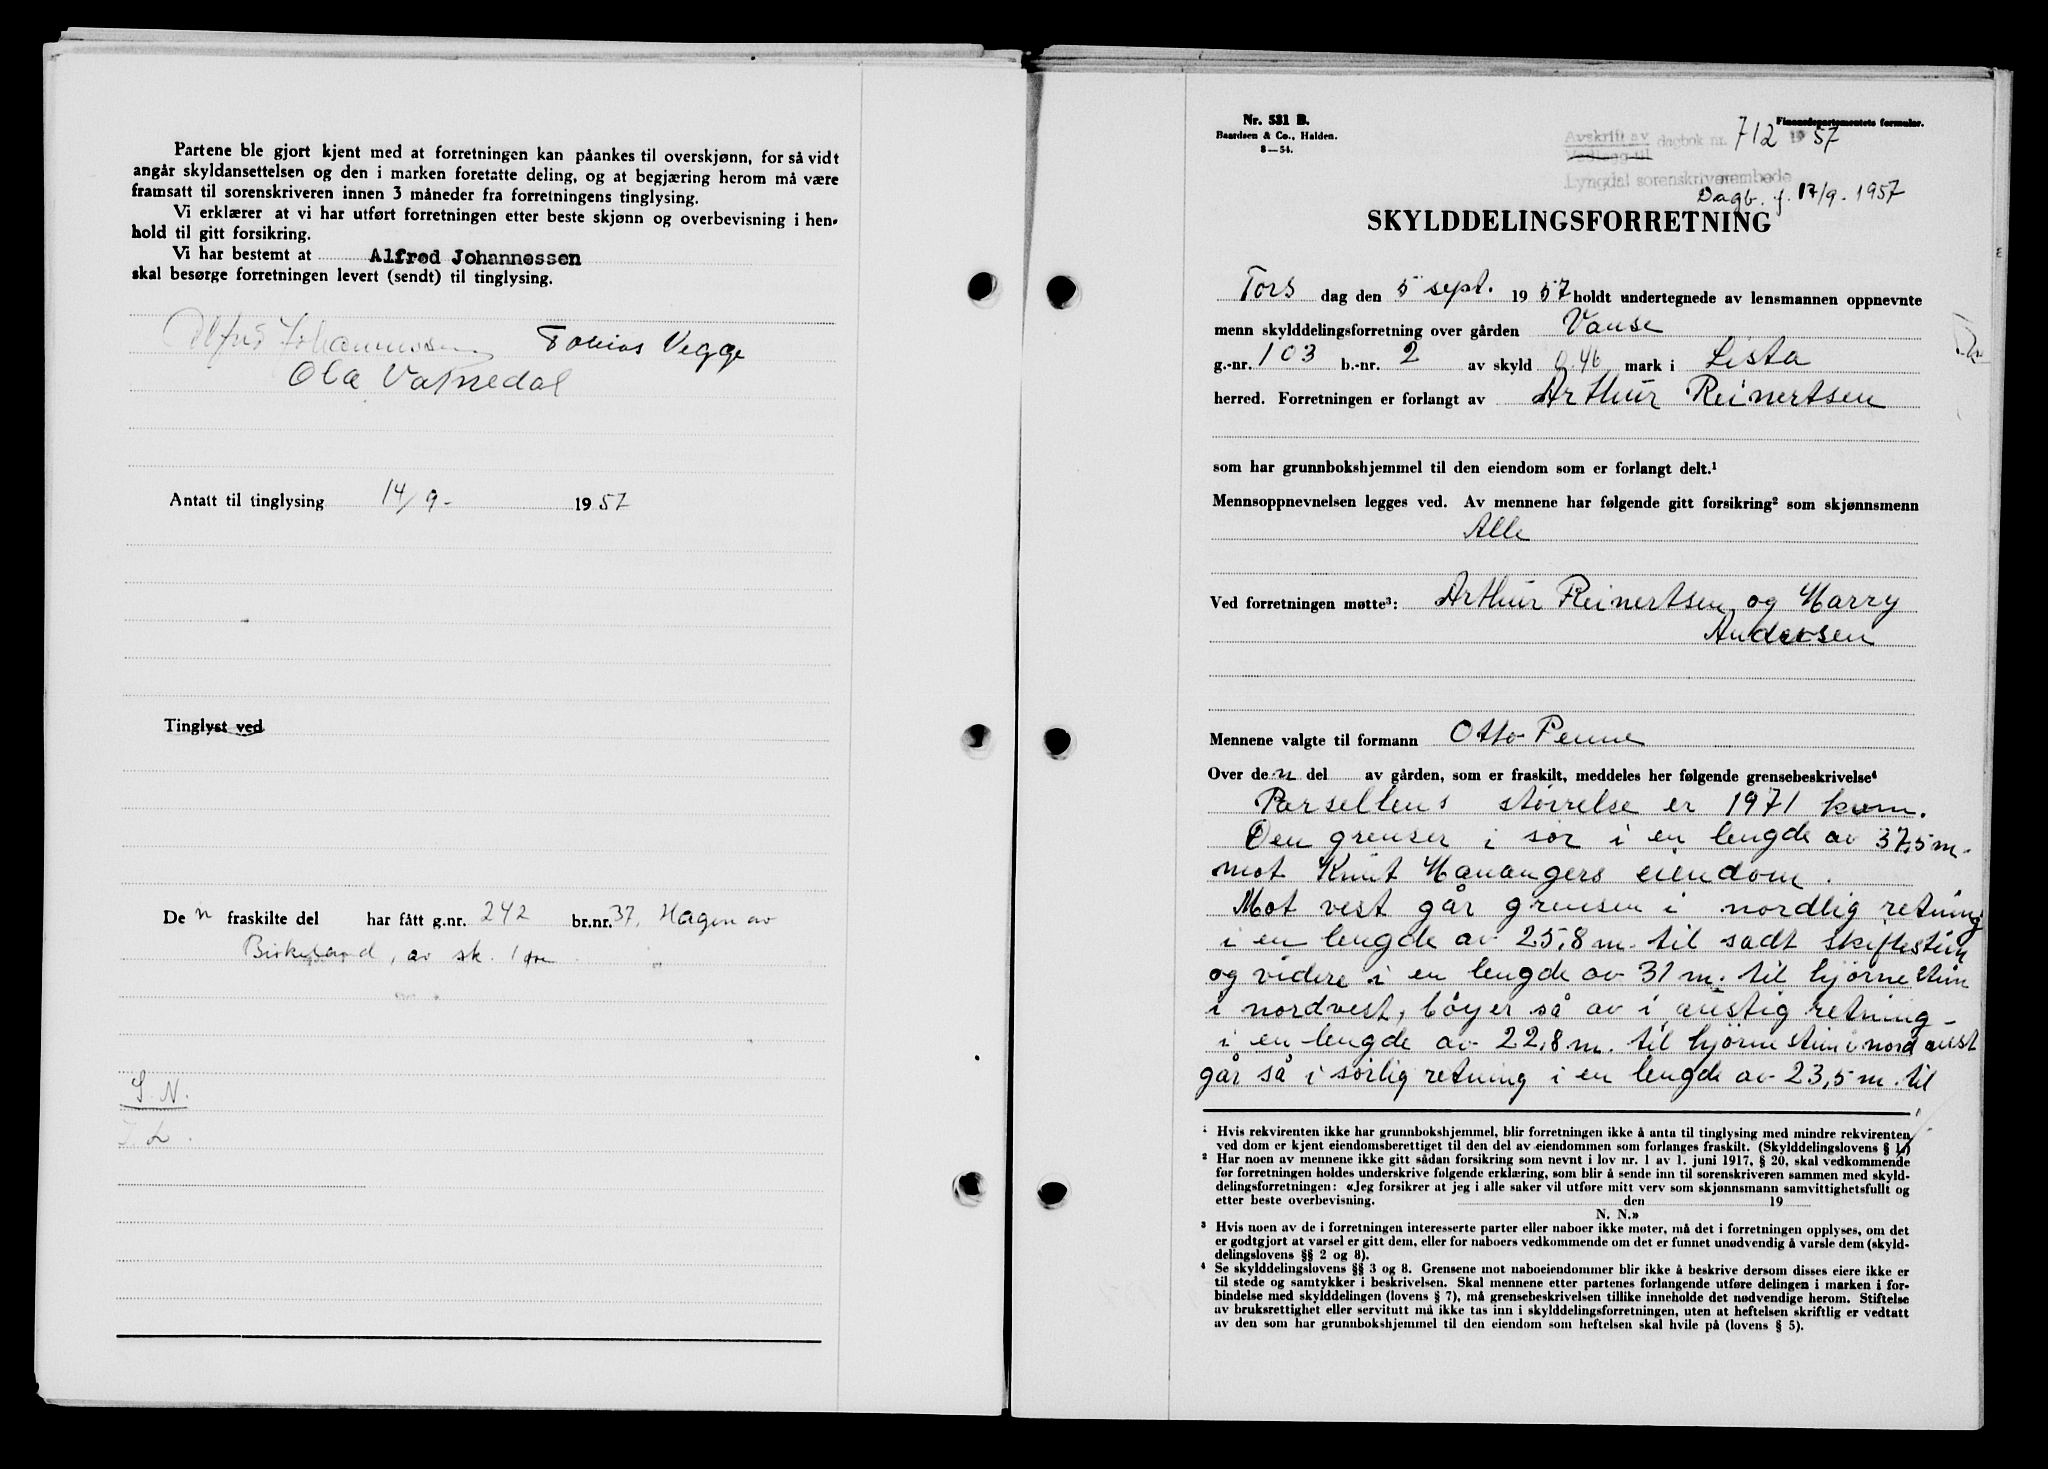 Partene ble gjort kjent med at forretningen kan påankes til overskjønn, for så vidt
angår skyldansettelsen og den i marken foretatte deling, og at begjæring herom må være
framsatt til sorenskriveren innen 3 måneder fra forretningens tinglysing.
Vi erklærer at vi har utført forretningen etter beste skjønn og overbevisning i hen-
hold til gitt forsikring.
Vi har bestemt at Alfred Johannessen
skal besørge forretningen levert (sendt) til tinglysing.
Alfred Johannessen Tobias Vegge
Ola Vatnedal
Antatt til tinglysing 14/9- 1957
Tinglyst ved
De n fraskilte del har fått g.nr. 242 br.nr. 37. Hagen av
Birkeland, av sk. 1 øre
S. N.
Nr. 531 B.
Baardsen & Co., Halden.
8—54.
Finansdepartementets formular.
Avskrift av
Vedlegg til
dagbok nr. 712 1957
Lyngdal sorenskriverembede
Dagb. f. 17/9. 1957
SKYLDDELINGSFORRETNING
Tors dag den 5 sept. 1957 holdt undertegnede av lensmannen oppnevnte
menn skylddelingsforretning over gården Vanse
g.-nr. 103 b.-nr. 2 av skyld 0.46 mark i Lista
herred. Forretningen er forlangt av Arthur Reinertsen
som har grunnbokshjemmel til den eiendom som er forlangt delt.¹
Mennsoppnevnelsen legges ved. Av mennene har følgende gitt forsikring² som skjønnsmenn
Alle
Ved forretningen møtte³: Arthur Reinertsen og Harry
Andersen
Mennene valgte til formann Otto Penne
Over den del av gården, som er fraskilt, meddeles her følgende grensebeskrivelse⁴
Parsellens størrelse er 1971 kvm.
Den grenser i sør i en lengde av 37,5 m.
mot Knut Hanangers eiendom.
Mot vest går grensen i nordlig retning
i en lengde av 25,8 m. til sadt skiftestein
og videre i en lengde av 31 m. til hjørnestein
i nordvest, bøyer så av i austig retning
i en lengde av 22,8 m. til hjørnestein i nordaust
går så i sørlig retning i en lengde av 23,5 m. til
¹ Hvis rekvirenten ikke har grunnbokshjemmel, blir forretningen ikke å anta til tinglysing med mindre rekvirenten
ved dom er kjent eiendomsberettiget til den del av eiendommen som forlanges fraskilt. (Skylddelingslovens § 1)
² Har noen av mennene ikke gitt sådan forsikring som nevnt i lov nr. 1 av 1. juni 1917, § 20, skal vedkommende
før forretningen holdes underskrive følgende erklæring, som blir å sende inn til sorenskriveren sammen med skyld-
delingsforretningen: «Jeg forsikrer at jeg i alle saker vil utføre mitt verv som skjønnsmann samvittighetsfullt og
etter beste overbevisning. den 19
N. N.»
³ Hvis noen av de i forretningen interesserte parter eller naboer ikke møter, må det i forretningen opplyses, om det
er godtgjort at varsel er gitt dem, eller for naboers vedkommende om det er funnet unødvendig å varsle dem (skyld-
delingslovens §§ 2 og 8).
⁴ Se skylddelingslovens §§ 3 og 8. Grensene mot naboeiendommer blir ikke å beskrive dersom disses eiere ikke er
til stede og samtykker i beskrivelsen. Skal mennene etter partenes forlangende utføre delingen i marken i for-
bindelse med skylddelingen (lovens § 7), må grensebeskrivelsen tillike inneholde det nødvendige herom. Stiftelse
av bruksrettighet eller servitutt må ikke tas inn i skylddelingsforretningen, uten at heftelsen skriftlig er vedtatt
av den som har grunnbokshjemmel til den eiendom som heftelsen skal hvile på (lovens § 5).